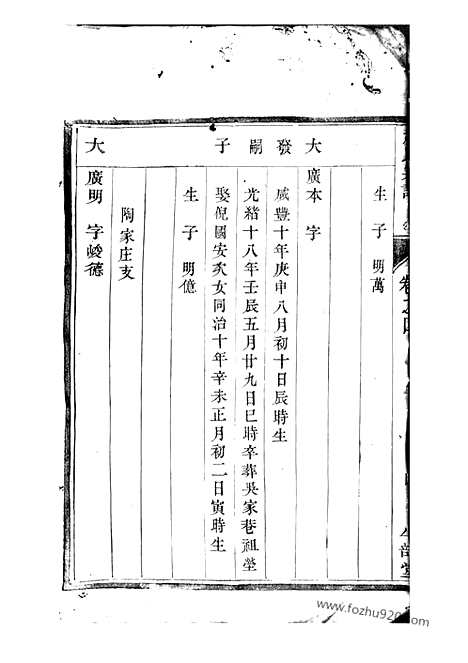 生子 明萬
大 廣本 字
發 咸豐十年庚申八月初十日辰時生
嗣 光緒十八年壬辰五月廿九日巳時卒葬吳家巷祖塋
子 娶倪國安次女同治十年辛未正月初二日寅時生
生子 明億
陶家庄支
大 廣明 字峻德
www.fozhu920.com